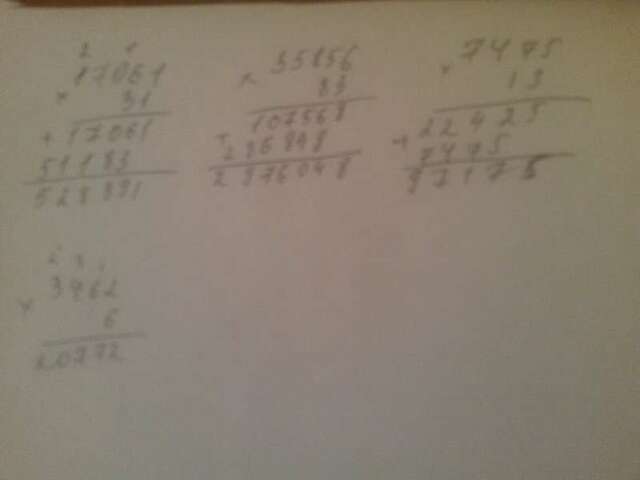 2 1
17061
× 31
+ 17061
51183
528891
35856
× 83
107568
+ 286848
2976048
7475
× 13
22425
+ 7475
97175
2 3 1
× 3462
6
20772